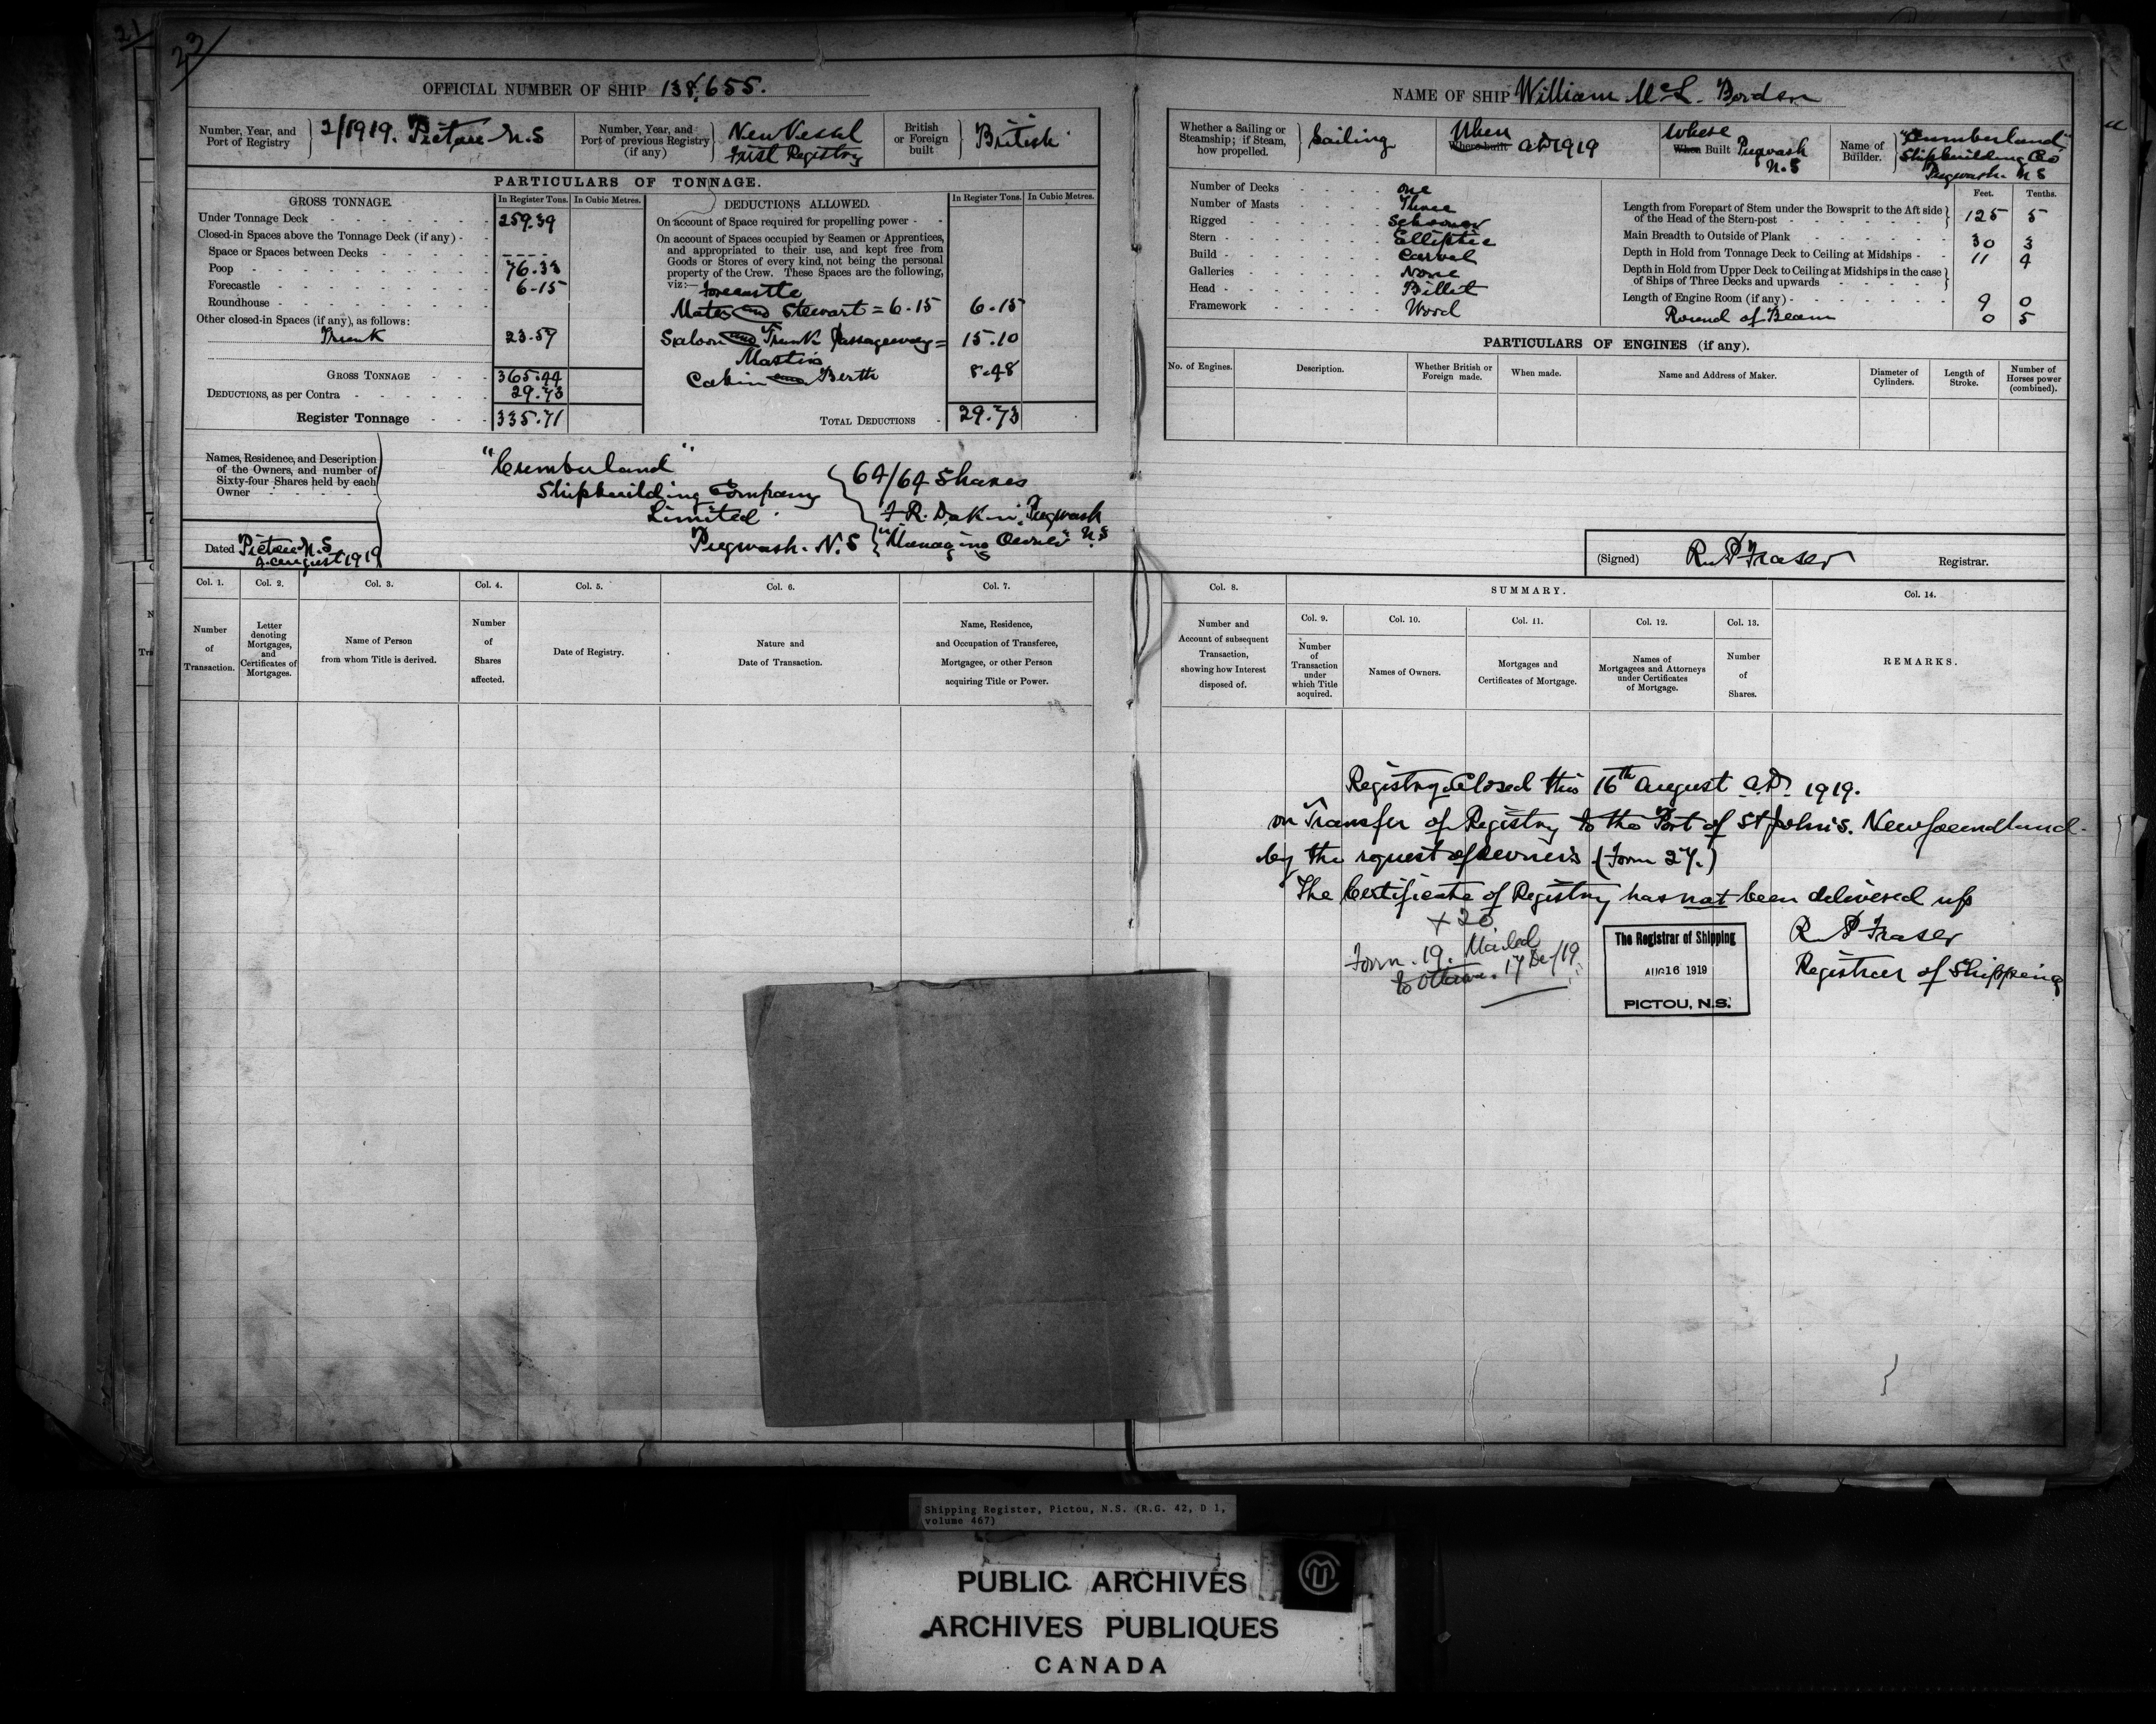 23
21
OFFICIAL NUMBER OF SHIP 138,655.
Number, Year, and Port of Registry
2/1919. Pictou N.S
Number, Year, and Port of previous Registry (if any)
New Vessel
First Registry
British or Foreign built
British
PARTICULARS OF TONNAGE.
GROSS TONNAGE. In Register Tons. In Cubic Metres.
Under Tonnage Deck 259.39
Closed-in Spaces above the Tonnage Deck (if any)
Space or Spaces between Decks
Poop 76.33
Forecastle 6.15
Roundhouse
Other closed-in Spaces (if any), as follows:
Trunk 23.57
GROSS TONNAGE 365.44
DEDUCTIONS, as per Contra 29.73
Register Tonnage 335.71
DEDUCTIONS ALLOWED. In Register Tons. In Cubic Metres.
On account of Space required for propelling power
On account of Spaces occupied by Seamen or Apprentices,
and appropriated to their use, and kept free from
Goods or Stores of every kind, not being the personal
property of the Crew. These Spaces are the following,
viz:— forecastle
Mates and Stewart = 6.15 6.15
Saloon and Trunk Passageway = 15.10
Masters
Cabin Berth 8.48
TOTAL DEDUCTIONS 29.73
Names, Residence, and Description
of the Owners, and number of
Sixty-four Shares held by each
Owner
"Cumberland"
Shipbuilding Company
Limited
Pugwash. N.S
64/64 Shares
F R. Dakin, Pugwash
"Managing Owner" N.S
Dated Pictou N.S
August 1919
Col. 1. Col. 2. Col. 3. Col. 4. Col. 5. Col. 6. Col. 7.
Number of Transaction.
Letter denoting Mortgages, and Certificates of Mortgages.
Name of Person from whom Title is derived.
Number of Shares affected.
Date of Registry.
Nature and Date of Transaction.
Name, Residence, and Occupation of Transferee, Mortgagee, or other Person acquiring Title or Power.
NAME OF SHIP William McL. Borden
Whether a Sailing or Steamship; if Steam, how propelled.
Sailing
When
Where built AD 1919
Where
When Built Pugwash
N.S
Name of Builder.
"Cumberland"
Shipbuilding Co
Pugwash. N S
Number of Decks One
Number of Masts Three
Rigged Schooner
Stern Elliptic
Build Carvel
Galleries None
Head Billet
Framework Wood
Feet. Tenths.
Length from Forepart of Stem under the Bowsprit to the Aft side
of the Head of the Stern-post 125 5
Main Breadth to Outside of Plank 30 3
Depth in Hold from Tonnage Deck to Ceiling at Midships 11 4
Depth in Hold from Upper Deck to Ceiling at Midships in the case
of Ships of Three Decks and upwards
Length of Engine Room (if any) 9 0
Round of Beam 0 5
PARTICULARS OF ENGINES (if any).
No. of Engines. Description. Whether British or Foreign made. When made. Name and Address of Maker. Diameter of Cylinders. Length of Stroke. Number of Horses power (combined).
(Signed) R. P Fraser Registrar.
Col. 8. SUMMARY. Col. 14.
Col. 9. Col. 10. Col. 11. Col. 12. Col. 13.
Number and Account of subsequent Transaction, showing how Interest disposed of.
Number of Transaction under which Title acquired.
Names of Owners.
Mortgages and Certificates of Mortgage.
Names of Mortgagees and Attorneys under Certificates of Mortgage.
Number of Shares.
REMARKS.
Registry Closed this 16th August A.D. 1919.
on Transfer of Registry to the Port of St John's. Newfoundland.
by the request of owners (Form 27.)
The Certificate of Registry has not been delivered up
+ 20
Form. 19. Mailed
to Ottawa. 17 De/19
The Registrar of Shipping
AUG 16 1919
PICTOU, N.S.
R. P Fraser
Registrar of Shipping
Shipping Register, Pictou, N.S. (R.G. 42, D 1,
volume 467)
PUBLIC ARCHIVES
ARCHIVES PUBLIQUES
CANADA